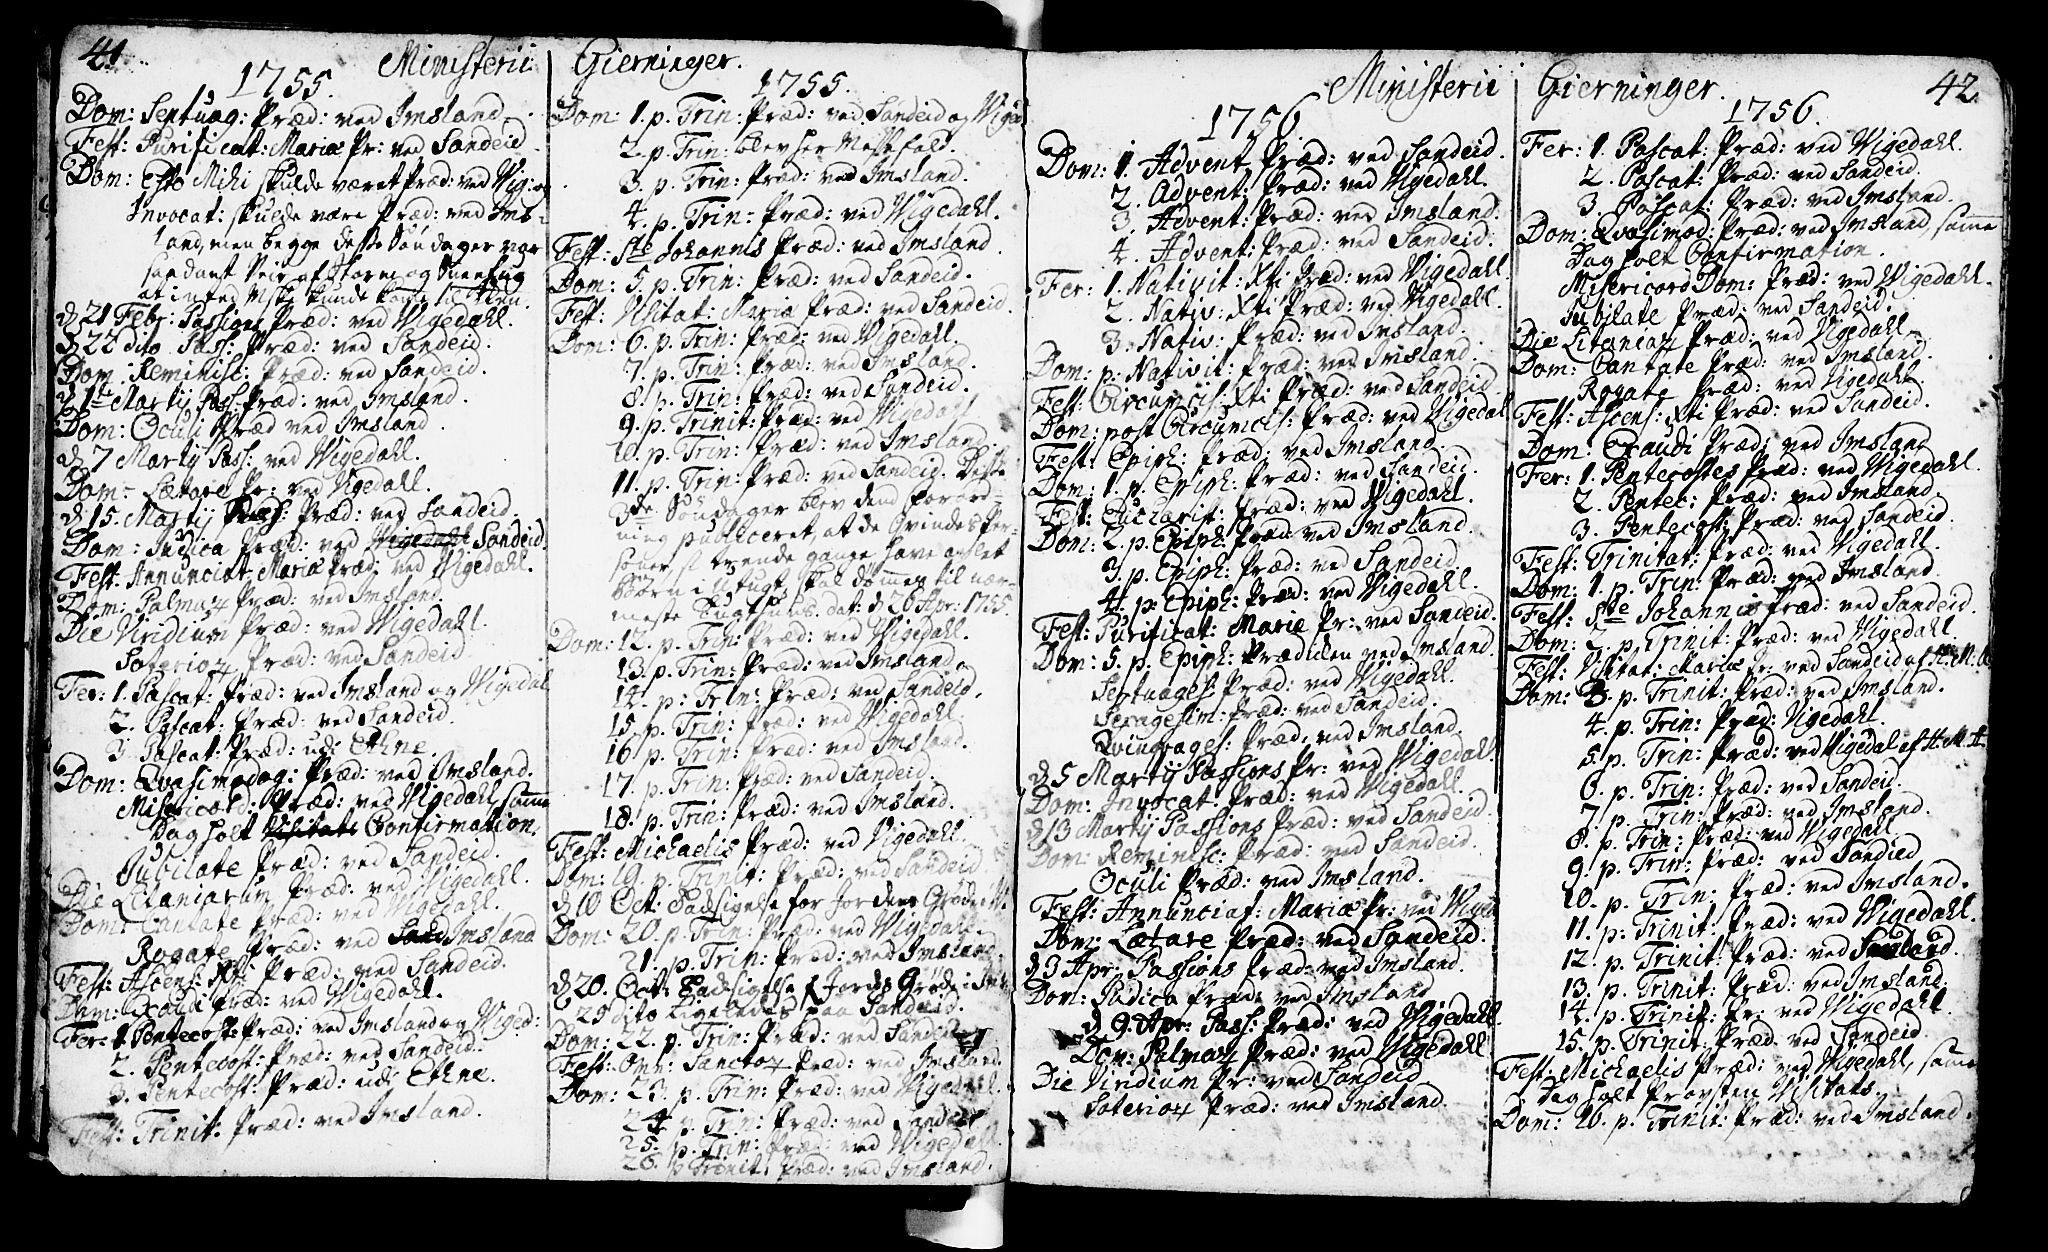 41
Ministerii Gierninger.
1755.
Dom: Septuag: Præd: ved Imsland.
Fest: Purificat: Mariæ Pr: ved Sandeid.
Dom: Esto Mihi skulde været Præd: ved Vig: og
Invocat: skulde være Præd: ved Ims-
land, men begge desse Søndager var
saadant Veir af Storm og Sneefug
at inted Msk: kunde komme til Kirken.
d 21 Febr: Passions Præd: ved Vigedahl.
d 22 dito Pass: Præd: ved Sandeid.
Dom: Reminisc: Præd: ved Sandeid.
d 1ste Martij Pass: Præd: ved Imsland.
Dom: Oculi Præd ved Imsland.
d 7 Martij Pass: ved Vigedahl.
Dom: Lætare Pr: ved Vigedahl.
d 15. Martij Pass: Præd: ved Sandeid.
Dom: Judica Præd: ved Vigedahl Sandeid.
Fest: Annunciat: Mariæ Præd: ved Vigedahl.
Dom: Palmar: Præd: ved Imsland.
Die Viridium Præd: ved Vigedahl.
Soterior: Præd: ved Sandeid.
Fer: 1. Pascat: Præd: ved Imsland og Vigedal
2. Pascat: Præd: ved Sandeid.
3 Pascat: Præd: udi Ethne.
Dom: Qvasimodog: Præd: ved Imsland.
Misericord: Præd: ved Vigedahl, samme
Dag holt Visitats Confirmation.
Jubilate Præd: ved Sandeid.
Die Litaniarum Præd: ved Vigedahl.
Dom: Cantate Præd: ved Vigedahl.
Rogate Præd: ved Sand Imsland
Fest: Ascens: Xti Præd: ved Sandeid.
Dom: Exaudi Præd: ved Vigedahl.
Fer: 1 Pentecoste Præd: ved Imsland og Viged:
2. Pentecost: Præd: ved Sandeid.
3. Pentecost: Præd: udi Ethne.
Fest: Trinit: Præd: ved Imsland.
1755.
Dom: 1. p. Trin: Præd: ved Sandeid og Viged
2. p. Trin: blev her Messefald.
3. p. Trin: Præd: ved Imsland.
4. p. Trin: Præd: ved Vigedahl.
Fest: Ste Johannis Præd: ved Imsland
Dom: 5. p. Trin: Præd: ved Sandeid.
Fest: Visitat: Mariæ Præd: ved Sandeid.
Dom: 6. p. Trin: Præd: ved Vigedahl.
7. p. Trin: Præd: ved Imsland.
8. p. Trin: Præd: ved Sandeid.
9. p. Trinit: Præd: ved Vigedahl
10. p. Trin: Præd: ved Imsland.
11. p. Trin: Præd: ved Sandeid. Desse
3de Søndager blev dend Forord-
ning publiceret, at de Qvindes Per-
soner, som trende gange have avlet
Børn i Utugt, skal dømmes til nær-
meste Tugthuus. dat: d 26 Apr: 1755.
Dom: 12. p. Trin: Præd: ved Vigedahl.
13. p. Trin: Præd: ved Imsland
14. p. Trin: Præd: ved Sandeid.
15. p. Trin: Præd: ved Vigedahl.
16. p. Trin: Præd: ved Imsland.
17. p. Trin: Præd: ved Sandeid.
18. p. Trin: Præd: ved Imsland.
Fest: Michaelis Præd: ved Vigedahl.
Dom: 19. p. Trinit: Præd: ved Sandeid.
d 10 Oct: Tacksigelse for Jordens Grøde i
Dom: 20. p. Trin: Præd: ved Vigedahl.
21. p. Trin: Præd: ved Imsland.
d 20. Oct: Tacksigelse f Jordens Grøde i Imsl
25 dito Ligeledes paa Sandeid.
Dom: 22. p. Trin: Præd: ved Sandeid
Fest: Omn: Sanctor: Præd: ved Imsland.
Dom: 23. p. Trin: Præd: ved Vigedahl.
24 p. Trin: Præd: ved Sandeid
25. p. Trin: Præd: ved Vigedahl.
26. p Trinit: Præd: ved Imsland.
Ministerii Gierninger.
42.
1756
Dom: 1. Advent Præd: ved Sandeid.
2. Advent: Præd: ved Vigedahl.
3. Advent: Præd: ved Imsland.
4. Advent: Præd: ved Sandeid.
Fer: 1. Nativit: Xti Præd: ved Vigedahl
2. Nativ: Xti Præd: ved Vigedahl.
3. Nativ: Præd: ved Imsland.
Dom: p. Nativit: Præd: ved Imsland.
Fest: Circumcis: Xti Præd: ved Sandeid
Dom: post Circumcis: Præd: ved Vigedal
Fest: Epiph: Præd: ved Imsland.
Dom: 1. p. Epiph: Præd: ved Sandeid.
Fest: Eucharist: Præd: ved Vigedahl.
Dom: 2. p. Epiph: Præd: ved Imsland.
3. p. Epiph: Præd: ved Sandeid.
4. p. Epiph: Præd: ved Vigedahl.
Fest: Purificat: Mariæ Pr: ved Sandeid.
Dom: 5. p. Epiph: Prædiken ved Imsland.
Septuages: Præd: ved Vigedahl.
Sexagesim: Præd: ved Sandeid.
Qvinqvages: Præd: ved Imsland.
d 5 Martij Passions Pr: ved Vigedahl.
Dom: Invocat: Præd: ved Vigedahl.
d 13 Martij Passions Præd: ved Sandeid.
Dom: Reminisc: Præd: ved Sandeid.
Oculi Præd: ved Imsland.
Fest: Annunciat: Mariæ Pr: ved Viged
Dom: Lætare Præd: ved Sandeid.
d 3 Apr: Passions Præd: ved Imsland.
Dom: Judica Præd: ved Imsland
d 9. Apr: Pass: Præd: ved Vigedahl.
Dom: Palmar Præd: ved Vigedahl
Die Viridium Pr: ved Sandeid
Soterior Præd: ved Imsland.
1756.
Fer: 1. Pascat: Præd: ved Vigedahl.
2. Pascat: Præd: ved Sandeid.
3. Pascat: Præd: ved Imsland.
Dom: Qvasimod: Præd: ved Imsland, samme
Dag holt Confirmation.
Misericord Dom: Præd: ved Vigedahl.
Jubilate Præd: ved Sandeid.
Die Litaniar Præd: ved Vigedahl.
Dom: Cantate Præd: ved Imsland.
Rogate Præd: ved Vigedahl.
Fest: Ascens: Xti Præd: ved Sandeid.
Dom: Exaudi Præd: ved Imsland
Fer: 1. Pentecostes Præd: ved Vigedahl.
2. Pentec: Præd: ved Imsland.
3. Pentecost: Præd: ved Sandeid.
Fest: Trinitat: Præd: ved Vigedahl.
Dom: 1. p. Trin: Præd: ved Imsland.
Fest: Ste Johannis Præd: ved Sandeid.
Dom: 2. p. Trinit: Præd: ved Vigedahl.
Fest: Visitat: Mariæ Pr: ved Sandeid af H. M.
Dom: 3. p. Trinit: Præd: ved Imsland.
4. p. Trin: Præd: Vigedahl.
5. p. Trin: Præd: ved Vigedal af H. M. A.
6. p. Trin: Præd: ved Sandeid.
7. p. Trin: Præd: ved Imsland.
8. p. Trin: Præd: ved Vigedahl
9. p. Trin: Præd: ved Sandied
10. p. Trin: Præd: ved Imsland.
11. p. Trinit: Præd: ved Vigedahl.
12. p. Trinit: Præd: ved
13. p. Trinit: Præd: ved Imsland.
14. p. Trinit: Pr: ved Vigedahl.
15. p. Trinit: Præd: ved Sandeid
Fest: Michaelis Præd: ved Vigedahl, samme
Dag holt Provsten Visitats.
Dom: 16. p. Trinit: Præd: ved Imsland.